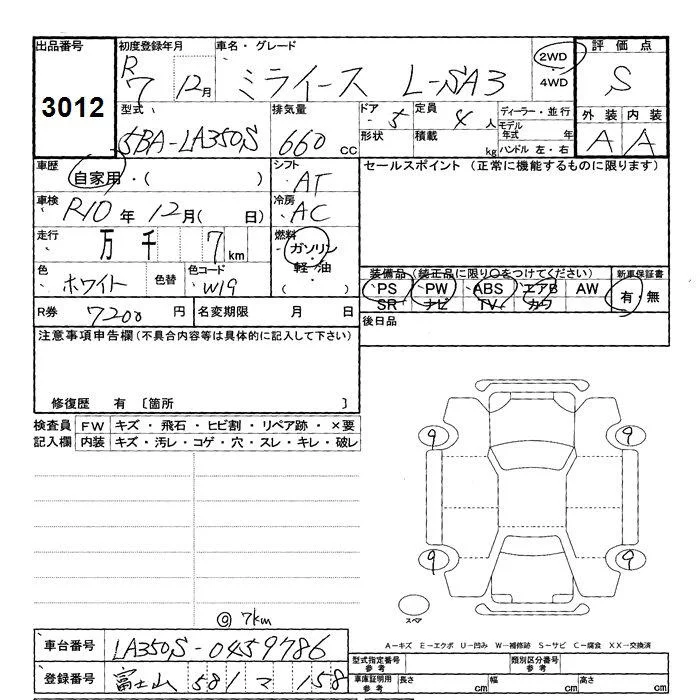 出品番号 初度登録年月 車名・グレード 2WD 評価点
3012 R7 12月 ミライース L-SA3 4WD S
型式 排気量 ドア 定員 ディーラー・並行 外装 内装
5BA-LA350S 660 CC 5 4人 モデル年式 年 A A
形状 積載 kg ハンドル 左・右
車歴 シフト セールスポイント (正常に機能するものに限ります)
自家用・( ) AT
車検 冷房
R10年 12月( 日) AC
走行 燃料
万 千 7 km ガソリン・軽・油
色 色替 色コード ( ) 装備品 (装正品に限り○をつけてください) 新車保証書
ホワイト W19 PS PW ABS エアB AW 有・無
SR ナビ TV カワ
R券 7200円 名変期限 月 日 後日品
注意事項申告欄(不具合内容等は具体的に記入して下さい)
修復歴 有 〔箇所 〕
検査員 FW キズ・飛石・ヒビ割・リペア跡・×要
記入欄 内装 キズ・汚レ・コゲ・穴・スレ・キレ・破レ
9 9
9 9
スペア
⑨ 7km
A-キズ E-エクボ U-凹み W-補修跡 S-サビ C-腐食 XX-交換済
車台番号 LA350S-0459786 型式指定番号 参考 類別区分番号 参考
登録番号 富士山 581 こ 158 車庫証明用 参考 長さ cm 幅 cm 高さ cm